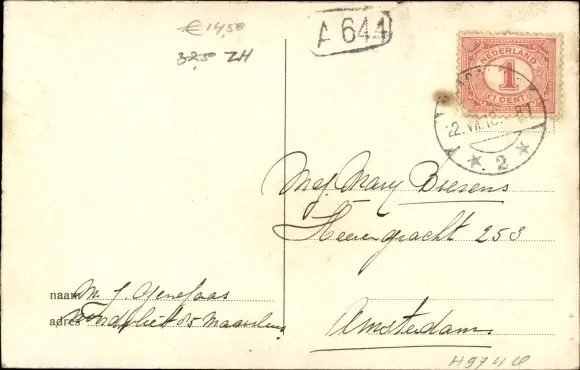 € 14,50
3250 ZH
A 644
NEDERLAND
1
1 CENT
22.VII.18. 
2
Mej Mary Biesens
Heerengracht 253
Amsterdam
naam M. J.
adres 85 Maassluis
H974